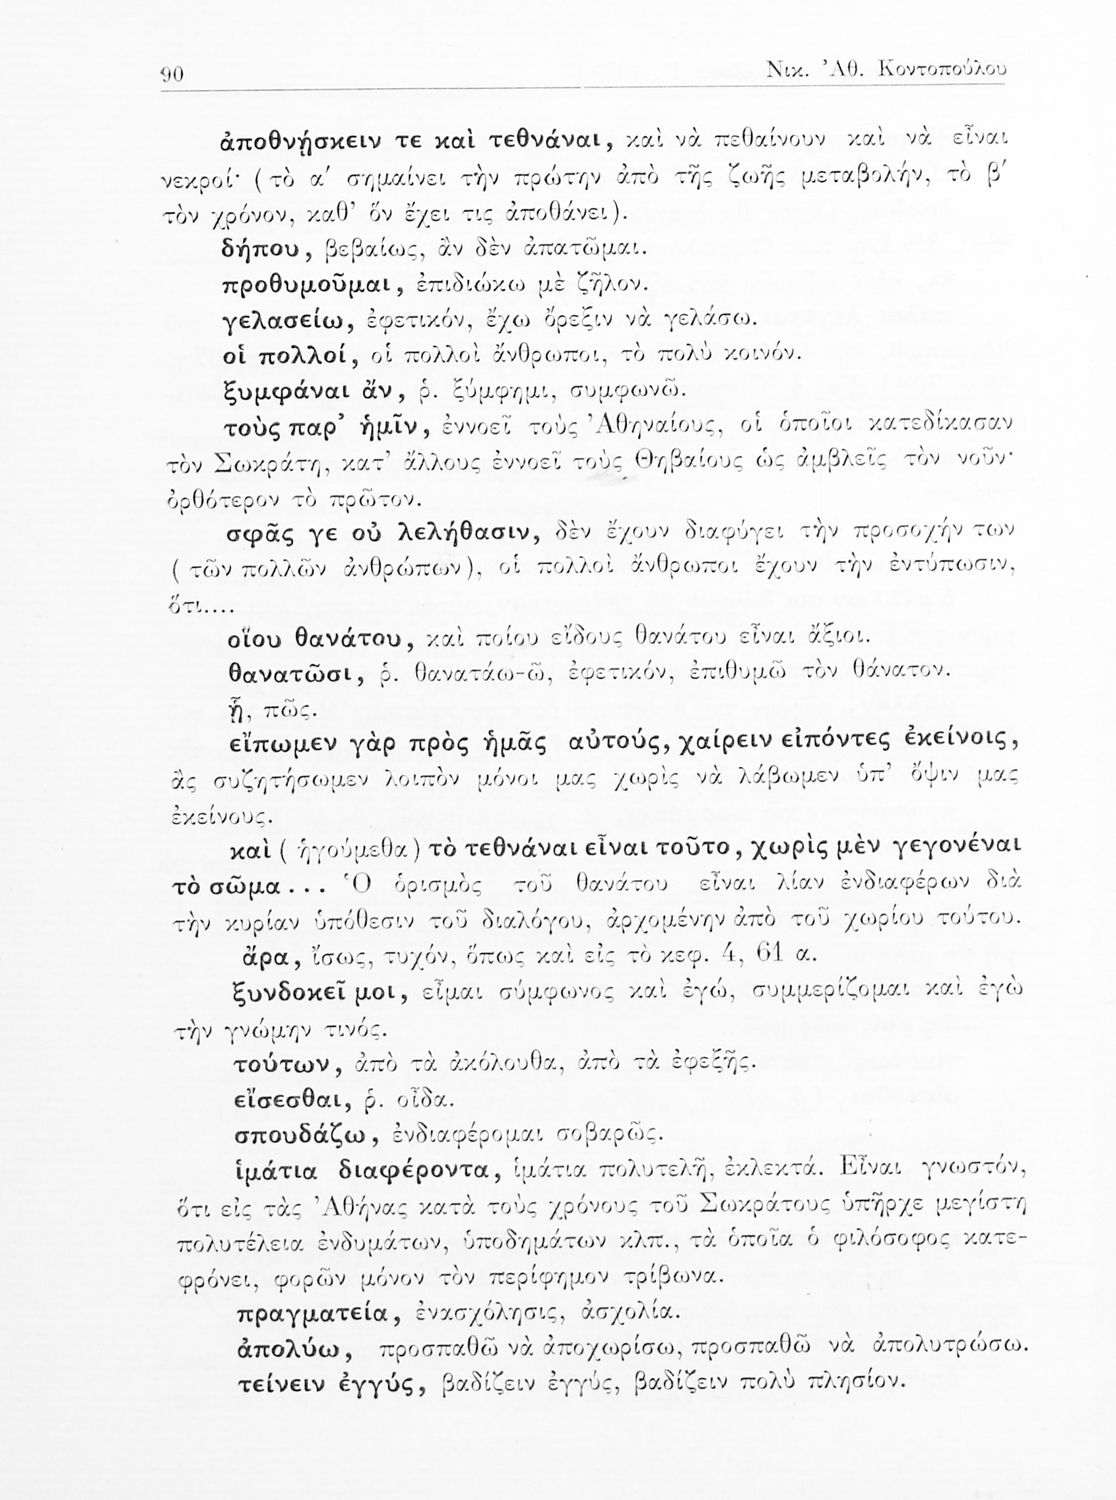 90 Νικ. Ἀθ. Κοντοπούλου
ἀποθνῄσκειν τε καὶ τεθνάναι, καὶ νὰ πεθαίνουν καὶ νὰ εἶναι
νεκροί· (τὸ α΄ σημαίνει τὴν πρώτην ἀπὸ τῆς ζωῆς μεταβολήν, τὸ β΄
τὸν χρόνον, καθ' ὅν ἔχει τις ἀποθάνει).
δήπου, βεβαίως, ἂν δὲν ἀπατῶμαι.
προθυμοῦμαι, ἐπιδιώκω μὲ ζῆλον.
γελασείω, ἐφετικόν, ἔχω ὄρεξιν νὰ γελάσω.
οἱ πολλοί, οἱ πολλοὶ ἄνθρωποι, τὸ πολὺ κοινόν.
ξυμφάναι ἄν, ῥ. ξύμφημι, συμφωνῶ.
τοὺς παρ' ἡμῖν, ἐννοεῖ τοὺς Ἀθηναίους, οἱ ὁποῖοι κατεδίκασαν
τὸν Σωκράτη, κατ' ἄλλους ἐννοεῖ τοὺς Θηβαίους ὡς ἀμβλεῖς τὸν νοῦν·
ὀρθότερον τὸ πρῶτον.
σφᾶς γε οὐ λελήθασιν, δὲν ἔχουν διαφύγει τὴν προσοχήν των
(τῶν πολλῶν ἀνθρώπων), οἱ πολλοὶ ἄνθρωποι ἔχουν τὴν ἐντύπωσιν,
ὅτι....
οἵου θανάτου, καὶ ποίου εἴδους θανάτου εἶναι ἄξιοι.
θανατῶσι, ῥ. θανατάω-ῶ, ἐφετικόν, ἐπιθυμῶ τὸν θάνατον.
ᾗ, πῶς.
εἴπωμεν γὰρ πρὸς ἡμᾶς αὐτούς, χαίρειν εἰπόντες ἐκείνοις,
ἂς συζητήσωμεν λοιπὸν μόνοι μας χωρὶς νὰ λάβωμεν ὑπ' ὄψιν μας
ἐκείνους.
καὶ (ἡγούμεθα) τὸ τεθνάναι εἶναι τοῦτο, χωρὶς μὲν γεγονέναι
τὸ σῶμα... Ὁ ὁρισμὸς τοῦ θανάτου εἶναι λίαν ἐνδιαφέρων διὰ
τὴν κυρίαν ὑπόθεσιν τοῦ διαλόγου, ἀρχομένην ἀπὸ τοῦ χωρίου τούτου.
ἄρα, ἴσως, τυχόν, ὅπως καὶ εἰς τὸ κεφ. 4, 61 α.
ξυνδοκεῖ μοι, εἶμαι σύμφωνος καὶ ἐγώ, συμμερίζομαι καὶ ἐγὼ
τὴν γνώμην τινός.
τούτων, ἀπὸ τὰ ἀκόλουθα, ἀπὸ τὰ ἐφεξῆς.
εἴσεσθαι, ῥ. οἶδα.
σπουδάζω, ἐνδιαφέρομαι σοβαρῶς.
ἱμάτια διαφέροντα, ἱμάτια πολυτελῆ, ἐκλεκτά. Εἶναι γνωστόν,
ὅτι εἰς τὰς Ἀθήνας κατὰ τοὺς χρόνους τοῦ Σωκράτους ὑπῆρχε μεγίστη
πολυτέλεια ἐνδυμάτων, ὑποδημάτων κλπ., τὰ ὁποῖα ὁ φιλόσοφος κατε-
φρόνει, φορῶν μόνον τὸν περίφημον τρίβωνα.
πραγματεία, ἐνασχόλησις, ἀσχολία.
ἀπολύω, προσπαθῶ νὰ ἀποχωρίσω, προσπαθῶ νὰ ἀπολυτρώσω.
τείνειν ἐγγύς, βαδίζειν ἐγγύς, βαδίζειν πολὺ πλησίον.